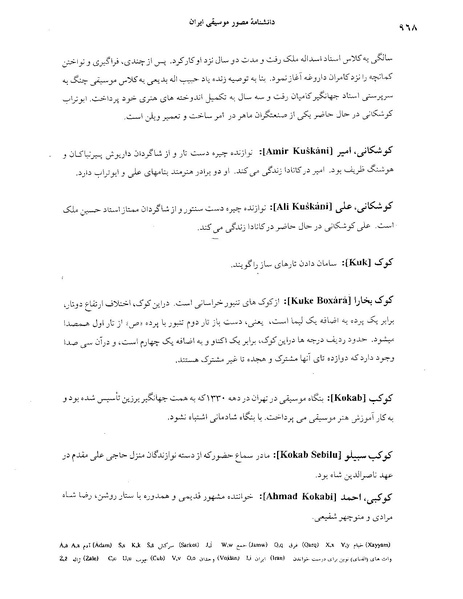 دانشنامهٔ مصور موسیقی ایران
۹۶۸
سالگی به کلاس استاد اسداله ملک رفت و مدت دو سال نزد او کار کرد. پس از چندی، فراگیری و نواختن
کمانچه را نزد کامران داروغه آغاز نمود. بنا به توصیه زنده یاد حبیب اله بدیعی به کلاس موسیقی چنگ به
سرپرستی استاد جهانگیر کامیان رفت و سه سال به تکمیل اندوخته های هنری خود پرداخت. ابوتراب
کوشکانی در حال حاضر یکی از صنعتگران ماهر در امر ساخت و تعمیر ویلن است.
کوشکانی، امیر [Amir Kuškáni]: نوازنده چیره دست تار و از شاگردان داریوش پیرنیاکان و
هوشنگ ظریف بود. امیر در کانادا زندگی می کند. او دو برادر هنرمند بنامهای علی و ابوتراب دارد.
کوشکانی، علی [Ali Kuškáni]: نوازنده چیره دست سنتور و از شاگردان ممتاز استاد حسین ملک
است. علی کوشکانی در حال حاضر در کانادا زندگی می کند.
کوک [Kuk]: سامان دادن تارهای ساز را گویند.
کوک بخارا [Kuke Boxárá]: از کوک های تنبور خراسانی است. در این کوک، اختلاف ارتفاع دوتار،
برابر یک پرده به اضافه یک لیما است، یعنی، دست باز تار دوم تنبور با پرده «ص» از تار اول همصدا
میشود. حدود ردیف درجه ها در این کوک، برابر یک اکتاو و به اضافه یک چهارم است، و در آن سی صدا
وجود دارد که دوازده تای آنها مشترک و هجده تا غیر مشترک هستند.
کوکب [Kokab]: بنگاه موسیقی در تهران در دهه ۱۳۳۰ که به همت جهانگیر برزین تأسیس شده بود و
به کار آموزش هنر موسیقی می پرداخت. با بنگاه شادمانی اشتباه نشود.
کوکب سبیلو [Kokab Sebilu]: مادر سماع حضور که از دسته نوازندگان منزل حاجی علی مقدم در
عهد ناصرالدین شاه بود.
کوکبی، احمد [Ahmad Kokabi]: خواننده مشهور قدیمی و همدوره با ستار روشن، رضا شاه
مرادی و منوچهر شفیعی.